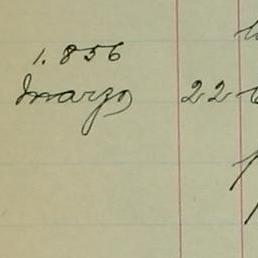 1.856
Marzo 22